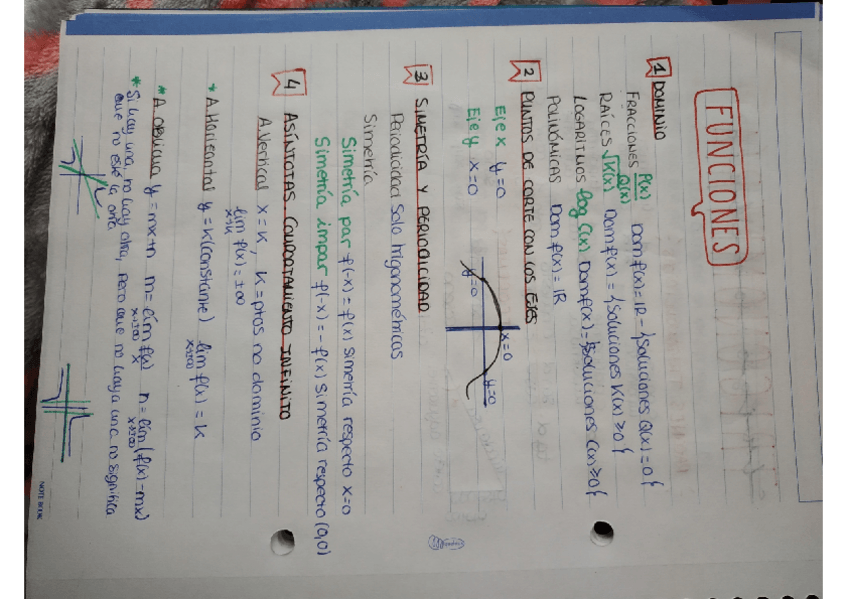 FUNCIONES
1 DOMINIO
FRACCIONES P(x)/Q(x) Dom f(x) = IR - {soluciones Q(x) = 0{
RAÍCES √K(x) Dom f(x) = {soluciones K(x) ≥ 0{
LOGARITMOS log C(x) Dom f(x) = {soluciones C(x) ≥ 0{
POLINÓMICAS Dom f(x) = IR
2 PUNTOS DE CORTE CON LOS EJES
Eje x y = 0
Eje y x = 0
x=0
y=0
y=0
3 SIMETRÍA Y PERIODICIDAD
Periodicidad Solo trigonométricas
Simetría
Simetría par f(-x) = f(x) Simetría respecto x=0
Simetría impar f(-x) = -f(x) Simetría respecto (0,0)
4 ASÍNTOTAS COMPORTAMIENTO INFINITO
A. Vertical x = K, K = ptos no dominio
lim x→K f(x) = ±∞
* A. Horizontal y = K (constante) lim x→±∞ f(x) = K
* A. Oblicua y = mx+n m = lim x→±∞ f(x)/x n = lim x→±∞ (f(x) - mx)
* Si hay una, no hay otra, pero que no haya una no significa
que no esté la otra
NOTE BOOK